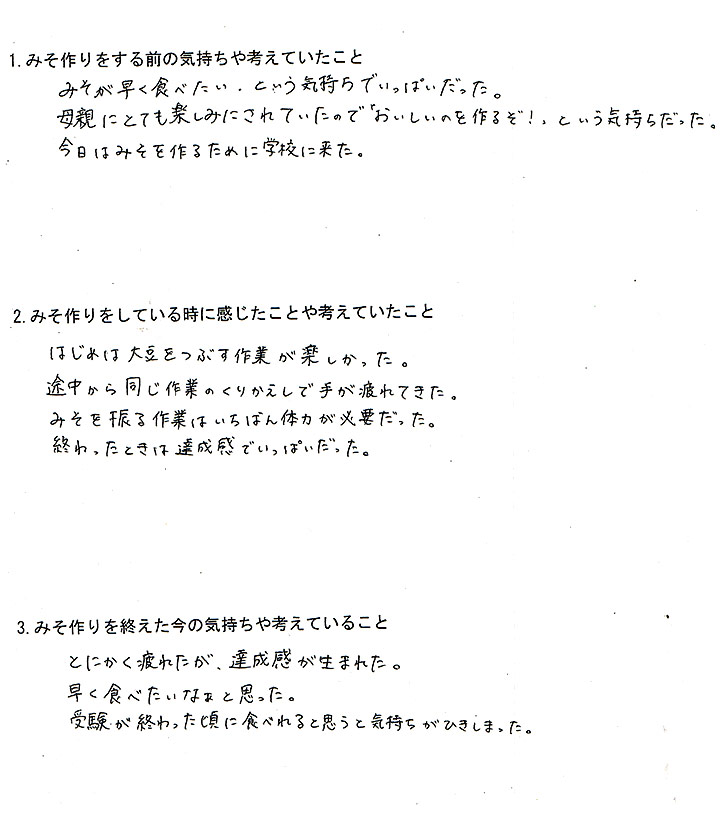 1.みそ作りをする前の気持ちや考えていたこと
みそが早く食べたい.という気持ちでいっぱいだった。
母親にとても楽しみにされていたので「おいしいのを作るぞ!」という気持ちだった。
今日はみそを作るために学校に来た。
2.みそ作りをしている時に感じたことや考えていたこと
はじめは大豆をつぶす作業が楽しかった。
途中から同じ作業のくりかえしで手が疲れてきた。
みそを振る作業はいちばん体力が必要だった。
終わったときは達成感でいっぱいだった。
3.みそ作りを終えた今の気持ちや考えていること
とにかく疲れたが、達成感が生まれた。
早く食べたいなぁと思った。
受験が終わった頃に食べれると思うと気持ちがひきしまった。